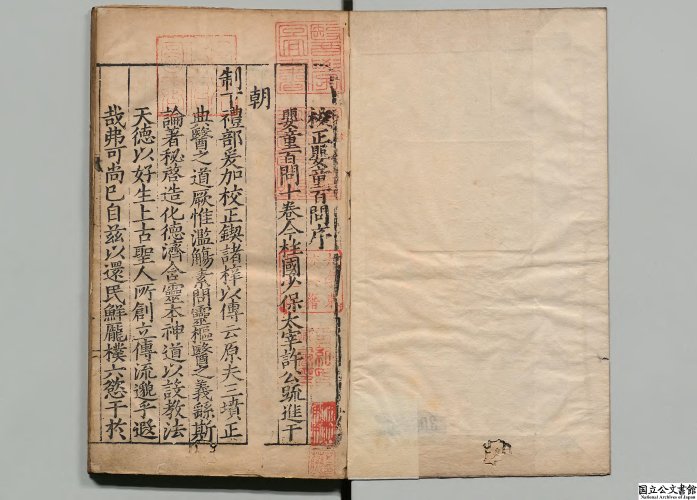 校正嬰童百問序
嬰童百問十卷今柱國少保太宰許公疏進于
朝
制下禮部爰加校正鍥諸梓以傳云原夫三墳正
典醫之道厥惟濫觴素問靈樞醫之義繇斯
論著秘啓造化德濟含靈本神道以設教法
天德以好生上古聖人所創立傳流邈乎遐
哉弗可尚已自兹以還民鮮龐樸六慾干於
国立公文書館
National Archives of Japan